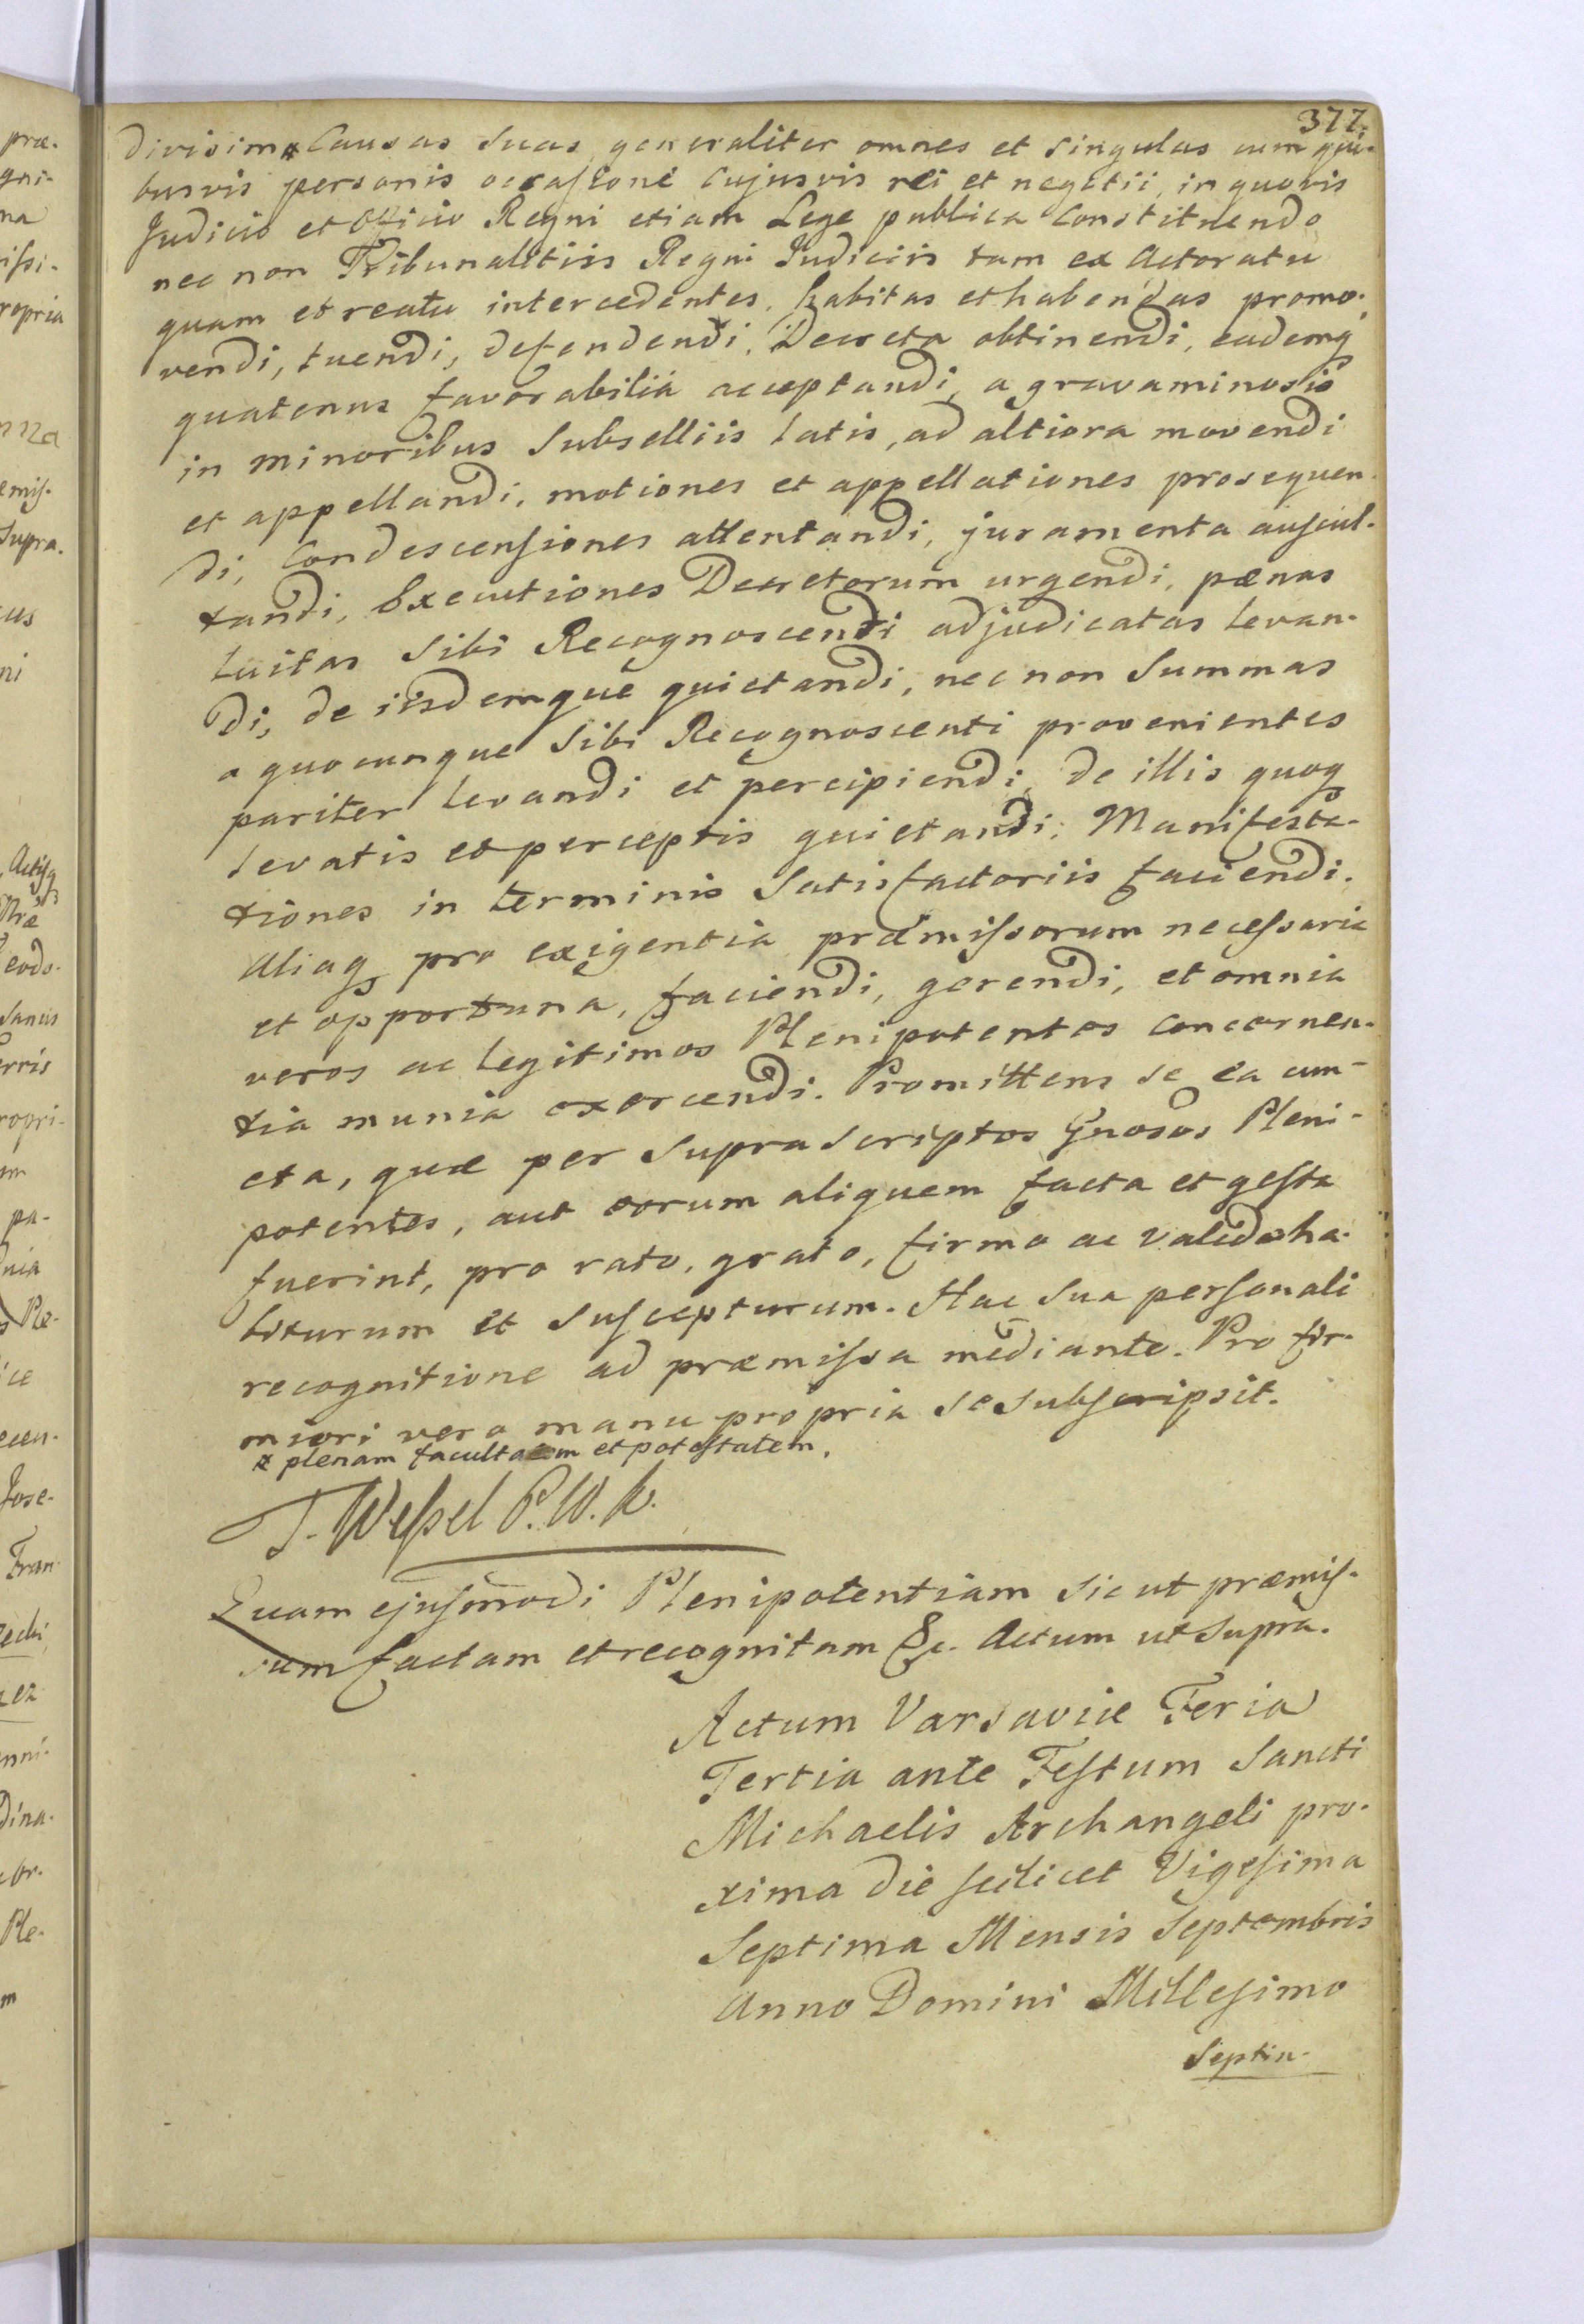 377.
divisim x Causas suas generaliter omnes et singulas cum qui-
busvis personis occasione cujusvis rei et negotii, in quovis
Judicio et Officio Regni etiam Lege publica Constituendo
nec non Tribunalitiis Regni Judiciis tam ex Actoratu
quam et reatu intercedentes, habitas et habendas promo-
vendi, tuendi, defendendi, Decreta obtinendi, eademq
quatenus favorabilia acceptandi, a gravaminosis
in minoribus Subselliis latis, ad altiora movendi
et appellandi, motiones et appellationes prosequen-
di, Condescensiones attentandi, juramenta auscul-
tandi, Executiones Decretorum urgendi, pænas
luitas sibi Recognoscendi adjudicatas levan-
di, de iisdemque quietandi, nec non Summas
a quocunque sibi Recognoscenti provenientes
pariter levandi et percipiendi, de illis quoq
levatis et perceptis quietandi, Manifesta-
tiones in terminis Satisfactoriis faciendi.
Aliaq pro exigentia præmissorum necessaria
et opportuna, faciendi, gerendi, et omnia
veros ac legitimos Plenipotentes concernen-
tia munia exercendi. Promittens se ea cun-
cta, quæ per Suprascriptos Gnosos Pleni-
potentes, aut eorum aliquem facta et gesta
fuerint, pro rato, grato, firmo ac valido ha-
biturum et suscepturum. Hac sua personali
recognitione ad præmissa mediante. Pro fir-
miori vero manu propria se subscripsit.
x plenam facultatem et potestatem.
T. Wessel P. W. K.
Quam ejusmodi Plenipotentiam sic ut præmis-
sum factam et recognitam &c. Actum ut supra.
Actum Varsaviæ Feria
Tertia ante Festum Sancti
Michaelis Archangeli pro-
xima die scilicet Vigesima
Septima Mensis Septembris
Anno Domini Millesimo
Septin-